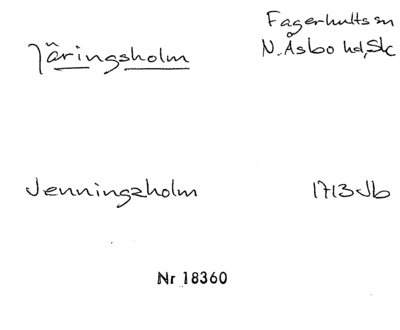 Fagerhults sn
Järingsholm N. Åsbo hd, Sk
Jenningzholm 1713 Jb
Nr 18360